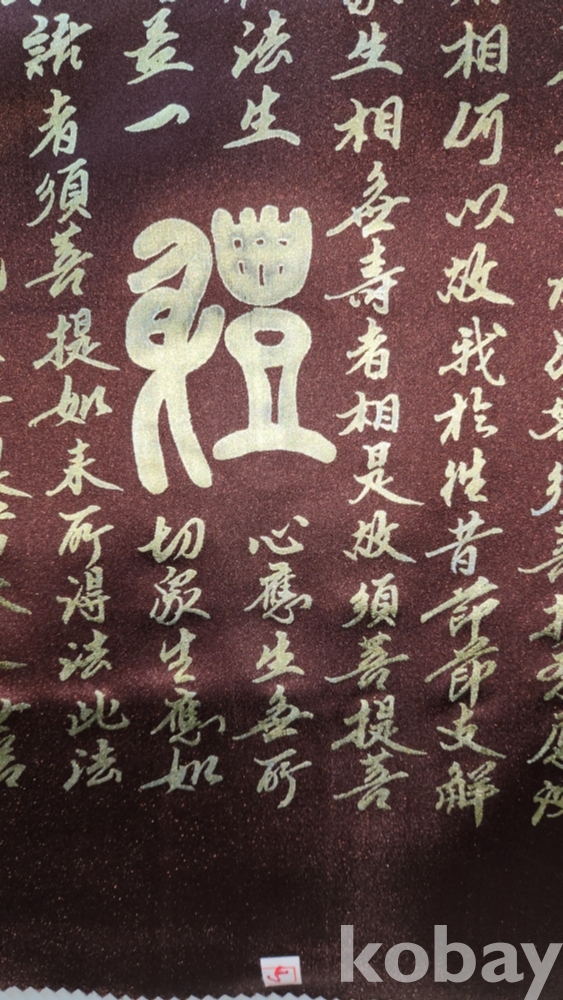 相何以故我於往昔節節支解
生相無壽者相是故須菩提菩
法生
心應生無所
益一
切眾生應如
語者須菩提如來所得法此法
kobay